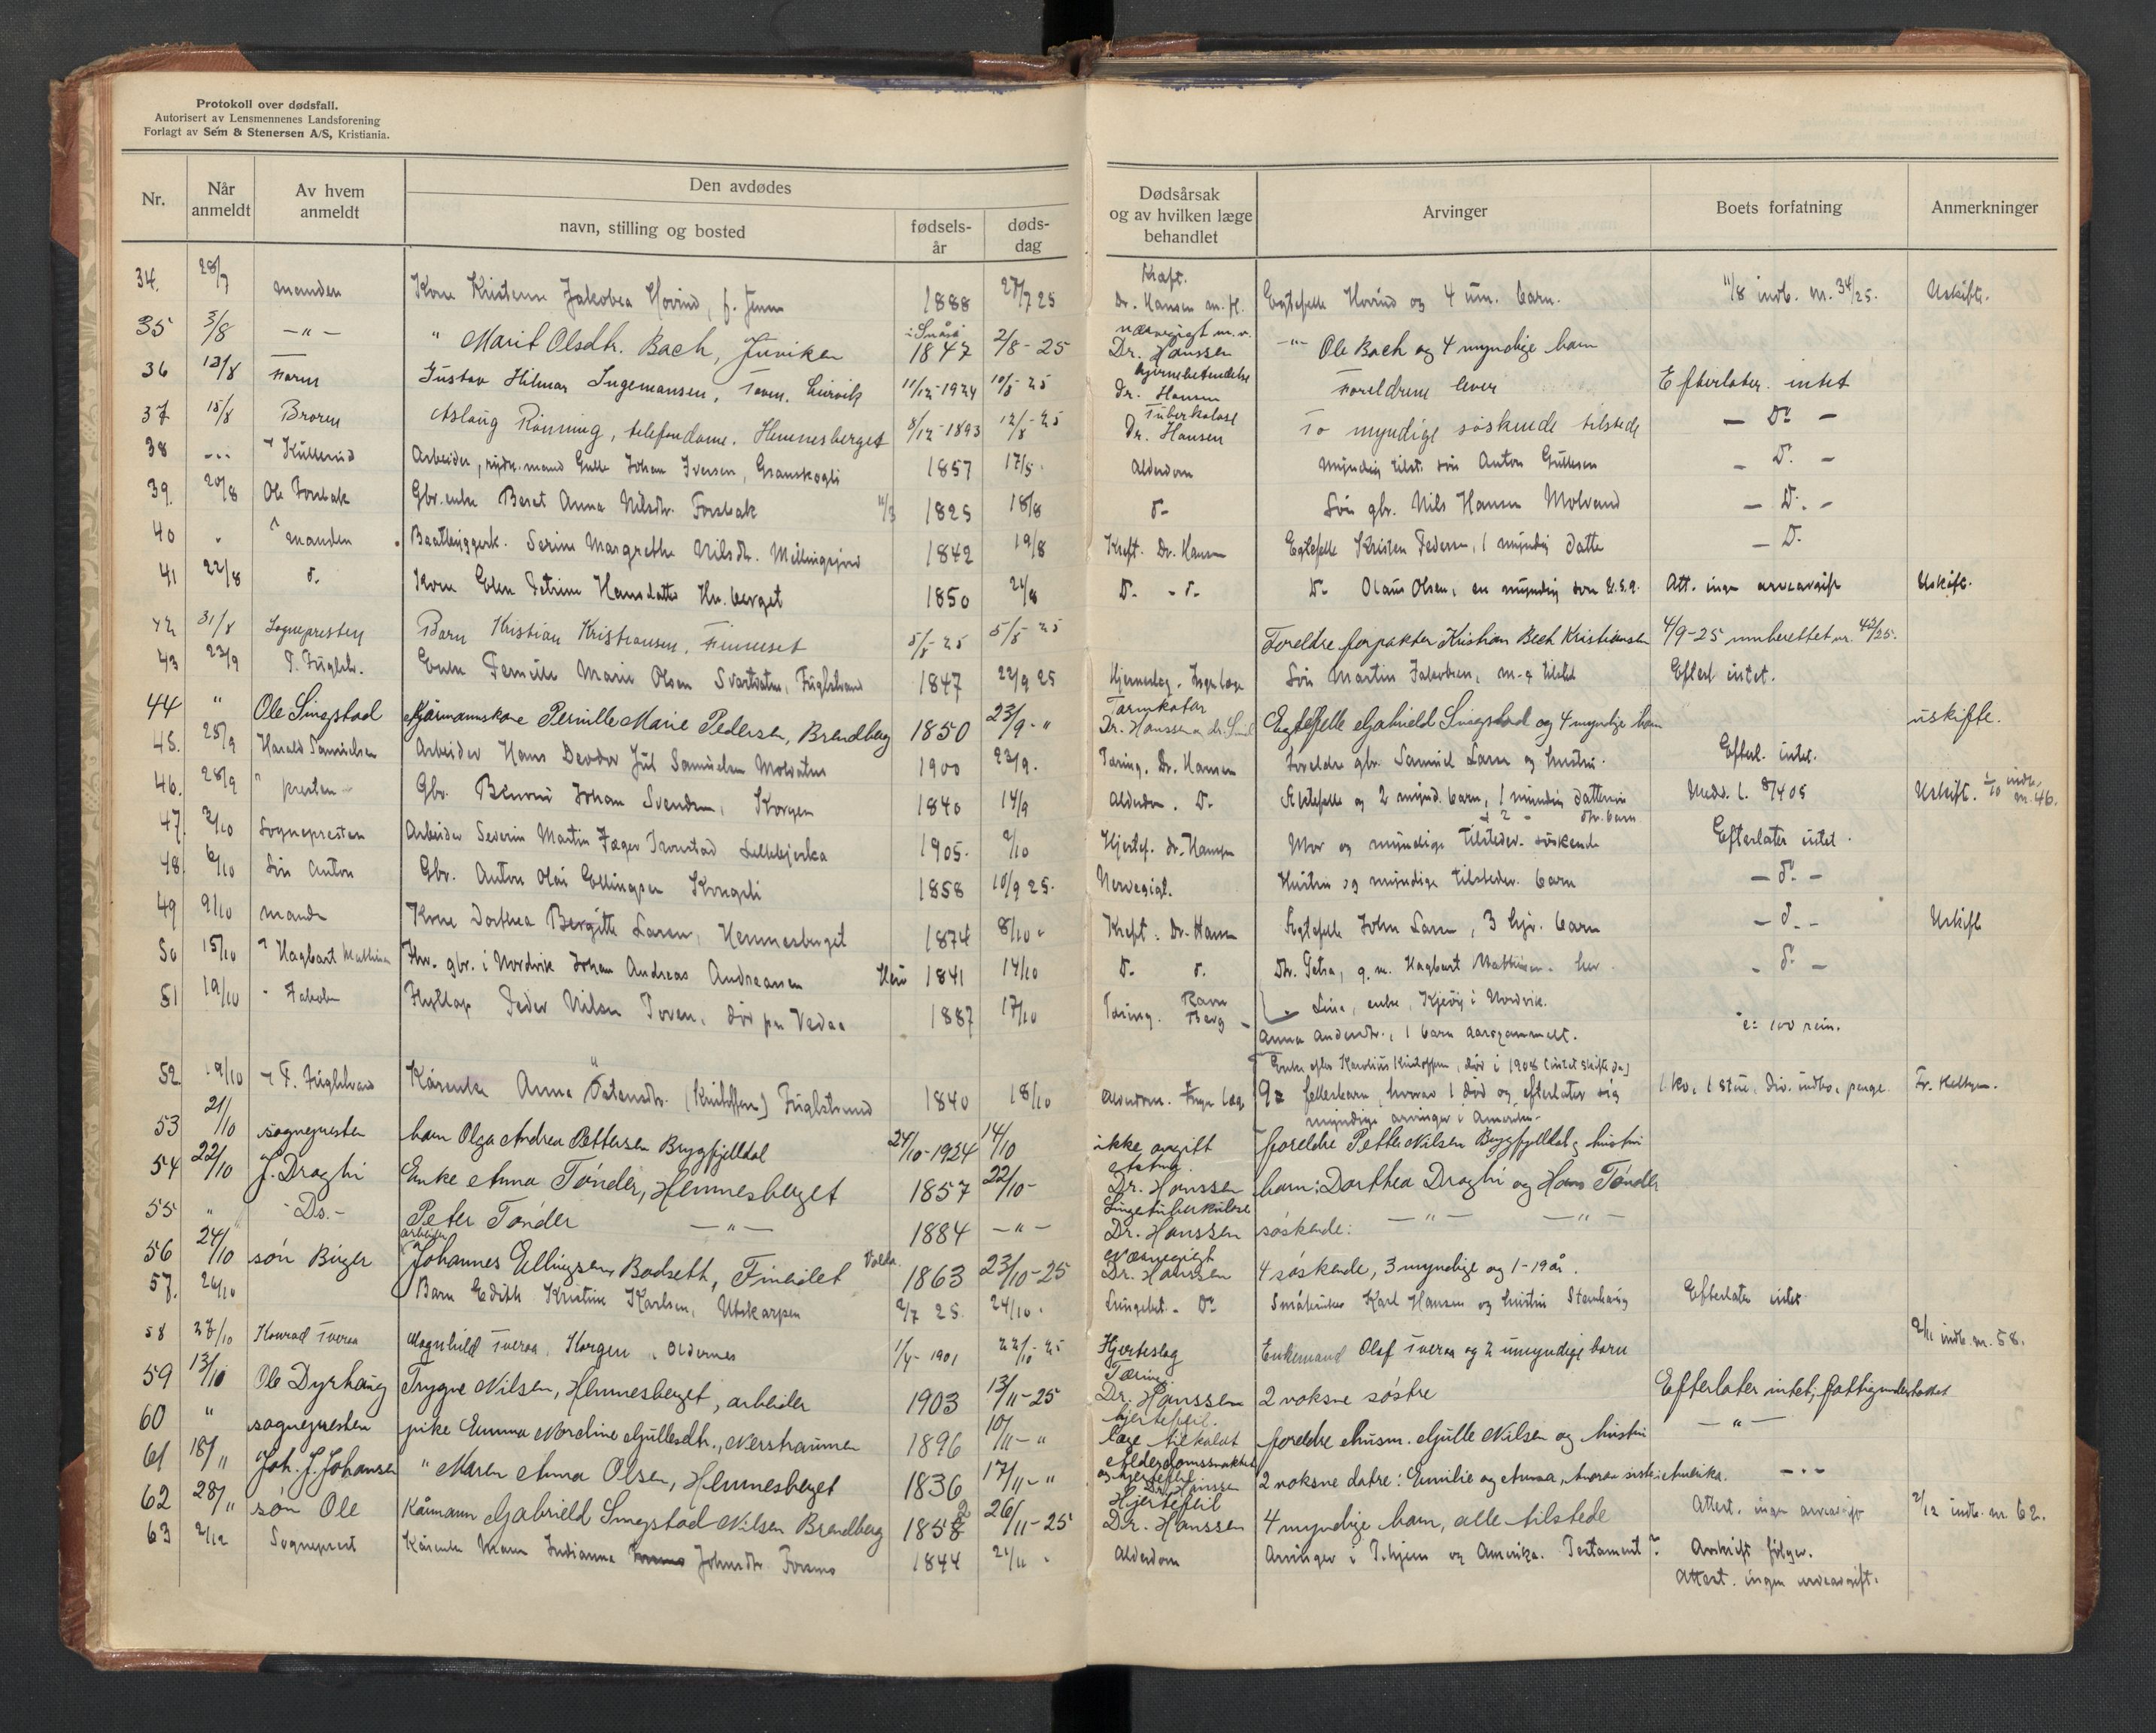 Protokoll over dødsfall.
Autorisert av Lensmennenes Landsforening
Forlagt av Sem & Stenersen A/S, Kristiania.
Nr. Når anmeldt Av hvem anmeldt Den avdødes navn, stilling og bosted fødselsår dødsdag Dødsårsak og av hvilken læge behandlet Arvinger Boets forfatning Anmerkninger
34. 28/7 manden Kone Jakobea Hovind, f. 1888 27/7 25 Kræft. Dr. Hansen Egtefelle Hovind og 4 um. barn. 11/8 indb. nr. 34/25. Uskifte.
35 3/8 -"- " Marit Olsdtr. Bach, Juviken i Snåsa 1847 2/8-25 Dr. Hanssen -"- Ole Bach og 4 myndige barn
36 12/8 Faren Gustav Hilmar Ingemansen, Leirvik 11/12-1924 10/8-25 Hjernebetendelse Dr. Hansen Foreldrene lever Efterlater intet
37 15/8 Broren Aslaug Rönning, telefondame. Hemnesberget 8/12-1893 12/8-25 Tuberkulose Dr. Hansen To myndige söskende tilstede - Do -
38 -"- Arbeider, mand Johan Iversen, Granskogli 1857 17/8. Alderdom myndig tilst. sön Anton Gullesen - Do. -
39. 20/8 Ole Forsbak Gbr. enke Beret Anna Nilsdtr. Forsbak 11/3 1825 18/8 do- Sön gbr. Nils Hansen Molvand - Do. -
40 " manden Baatbyggerk. Serine Margrethe Nilsdtr. 1842 19/8 Kreft. Dr. Hansen Egtefelle Kristen Pedersen, 1 myndig datter - Do.
41 22/8 do. Kone Elen Petrine Hansdatter Hn.berget 1850 21/8 Do. - do. Do. Olaus Olsen, en myndig sön Att. ingen arveavgift Uskifte.
42 31/8 Sognepresten Barn Kristian Kristiansen, Finneset 5/8-25 5/8-25 Foreldre forpakter Kristian Bech Kristiansen 4/9-25 innberettet nr. 42/25.
43 23/9 P. Fuglstr. Enke Pernille Marie Olsen Svartvatn, Fuglstrand 1847 22/9 25 Hjerneslag. Ingen læge Sön Martin Jakobsen, m. og tilsted Efterl. intet.
44 " Ole Singstad Kårmannskone Pernille Marie Pedersen, Brendberg 1850 23/9-" Tarmkatar Dr. Hanssen Egtefelle Gabrield Singstad og 4 myndige barn uskifte.
45. 25/9 Harald Samuelsen Arbeider Hans Deodor Jul Samuelsen Molvatn 1900 23/9. Tæring. Dr. Hansen Foreldre gbr. Samuel Larsen og hustru. Efterl. intet.
46. 28/9 " presten Gbr. Johan Svendsen, Korgen 1840 14/9 Alderdom. Do. Egtefelle og 2 mynd. barn, 1 myndig Uskift. 1/10 indb. nr. 46.
47. 2/10 Sognepresten Arbeider Severin Martin Jæger Tronstad Lillebjerka 1905. 2/10 Hjertef. dr. Hansen Mor og myndige tilstedev. söskende Efterlater intet.
48. 6/10 Sön Anton Gbr. Anton Olai Ellingsen Krogeli 1858 10/9 25. Hustru og myndige tilstedev. barn - Do. -
49 9/10 manden Kone Dorthea Bergitte Larsen, Hemnesberget 1874 8/10 " Kreft. Dr. Hansen Egtefelle John Larsen, 3 hjv. barn - Do. - Uskifte
50 15/10 " Hagbart Mathisen Fhv. gbr. i Nordvik Johan Andreas Andreassen 1841 14/10 Do. do. Dtr. Petra, g.m. Hagbart Mathisen. her. - Do. -
51 19/10 " Jakob Flytlap Peder Nilsen Toven, död paa Vedaa 1887 17/10 Tæring. Rana Berg " Lina, enke, i Nordvik. Anna Andersdtr., 1 barn aarsgammelt. 100 rein.
52 19/10 P. Fuglstrand Kårenke Anna Östensdtr. (Kristoffersen) Fuglstrand 1840 18/10 Alderdom. Ingen læge Enke efter Karolius Kristoffersen, död i 1908 9 fellesbarn, hvorav 1 död og efterlater sig myndige arvinger i Amerika. 1 ko, 1 stue, div. indbo, penge.
53 21/10 sognepresten barn Olga Andrea Pettersen Brygfjelldal 24/10-1924 14/10 ikke avgitt attest foreldre Petter Nilsen Brygfjelldal og hustru
54 22/10 J. Draghi Enke Anna Tønder, Hemnesberget 1857 22/10- Dr. Hanssen barn: Dorthea Draghi og Hans Tønder
55 " - Do. - Peter Tønder -"- 1884 -"- Lungetuberkulose Dr. Hanssen søskende: -"- -"-
56 24/10 søn Birger arbeider Johannes Ellingsen Bodseth, Fineidet 1863 23/10-25 Dr. Hanssen 4 søskende, 3 myndige og 1-19 år.
57. 26/10 Barn Edith Kristine Karlsen, Utskarpen 2/7 25. 24/10. Lungebet. Do Småbruker Karl Hansen og hustru Stenhaug Efterlater intet
58 27/10 Konrad Tveraa Magnhild Tveraa, Korgen, Oldernes 1/4-1901 22/10-25 Hjerteslag Enkemand Olaf Tveraa og 2 umyndige barn 2/11 indb. nr. 58.
59 13/10 Ole Dyrhaug Trygve Nilsen, Hemnesberget, arbeider 1903 13/11-25 Tæring. Dr. Hanssen 2 voksne søstre Efterlater intet, fattigunderstøttet
60 " sognepresten pike Emma Nordine Gullesdtr., Nerstraumen 1896 10/11-" hjertefeil. læge tilkaldt foreldre husm. Gulle Nilsen og hustru -"-
61 18/" Joh. J. Johansen " Maren Anna Olsen, Hemnesberget 1836 17/11-" Alderdomssvakhet og hjertefeil Dr. Hanssen 2 voksne døtre: Emilie og Anna, hvorav siste i Amerika. -"-
62 28/" søn Ole Kårmann Gabrield Singstad Nilsen Brendberg 1858 2 26/11-25 Hjertefeil Dr. Hanssen 4 myndige barn, alle tilstede Attest. ingen arveavgift 2/12 indb. nr. 62.
63 2/12 Sogneprest Kårenke Maren Indianna Johnsdtr. Forsmo 1844 21/11 " Alderdom Arvinger i Trhjem og Amerika. Testament? Avskrift følger.
Attest. ingen arveavgift.